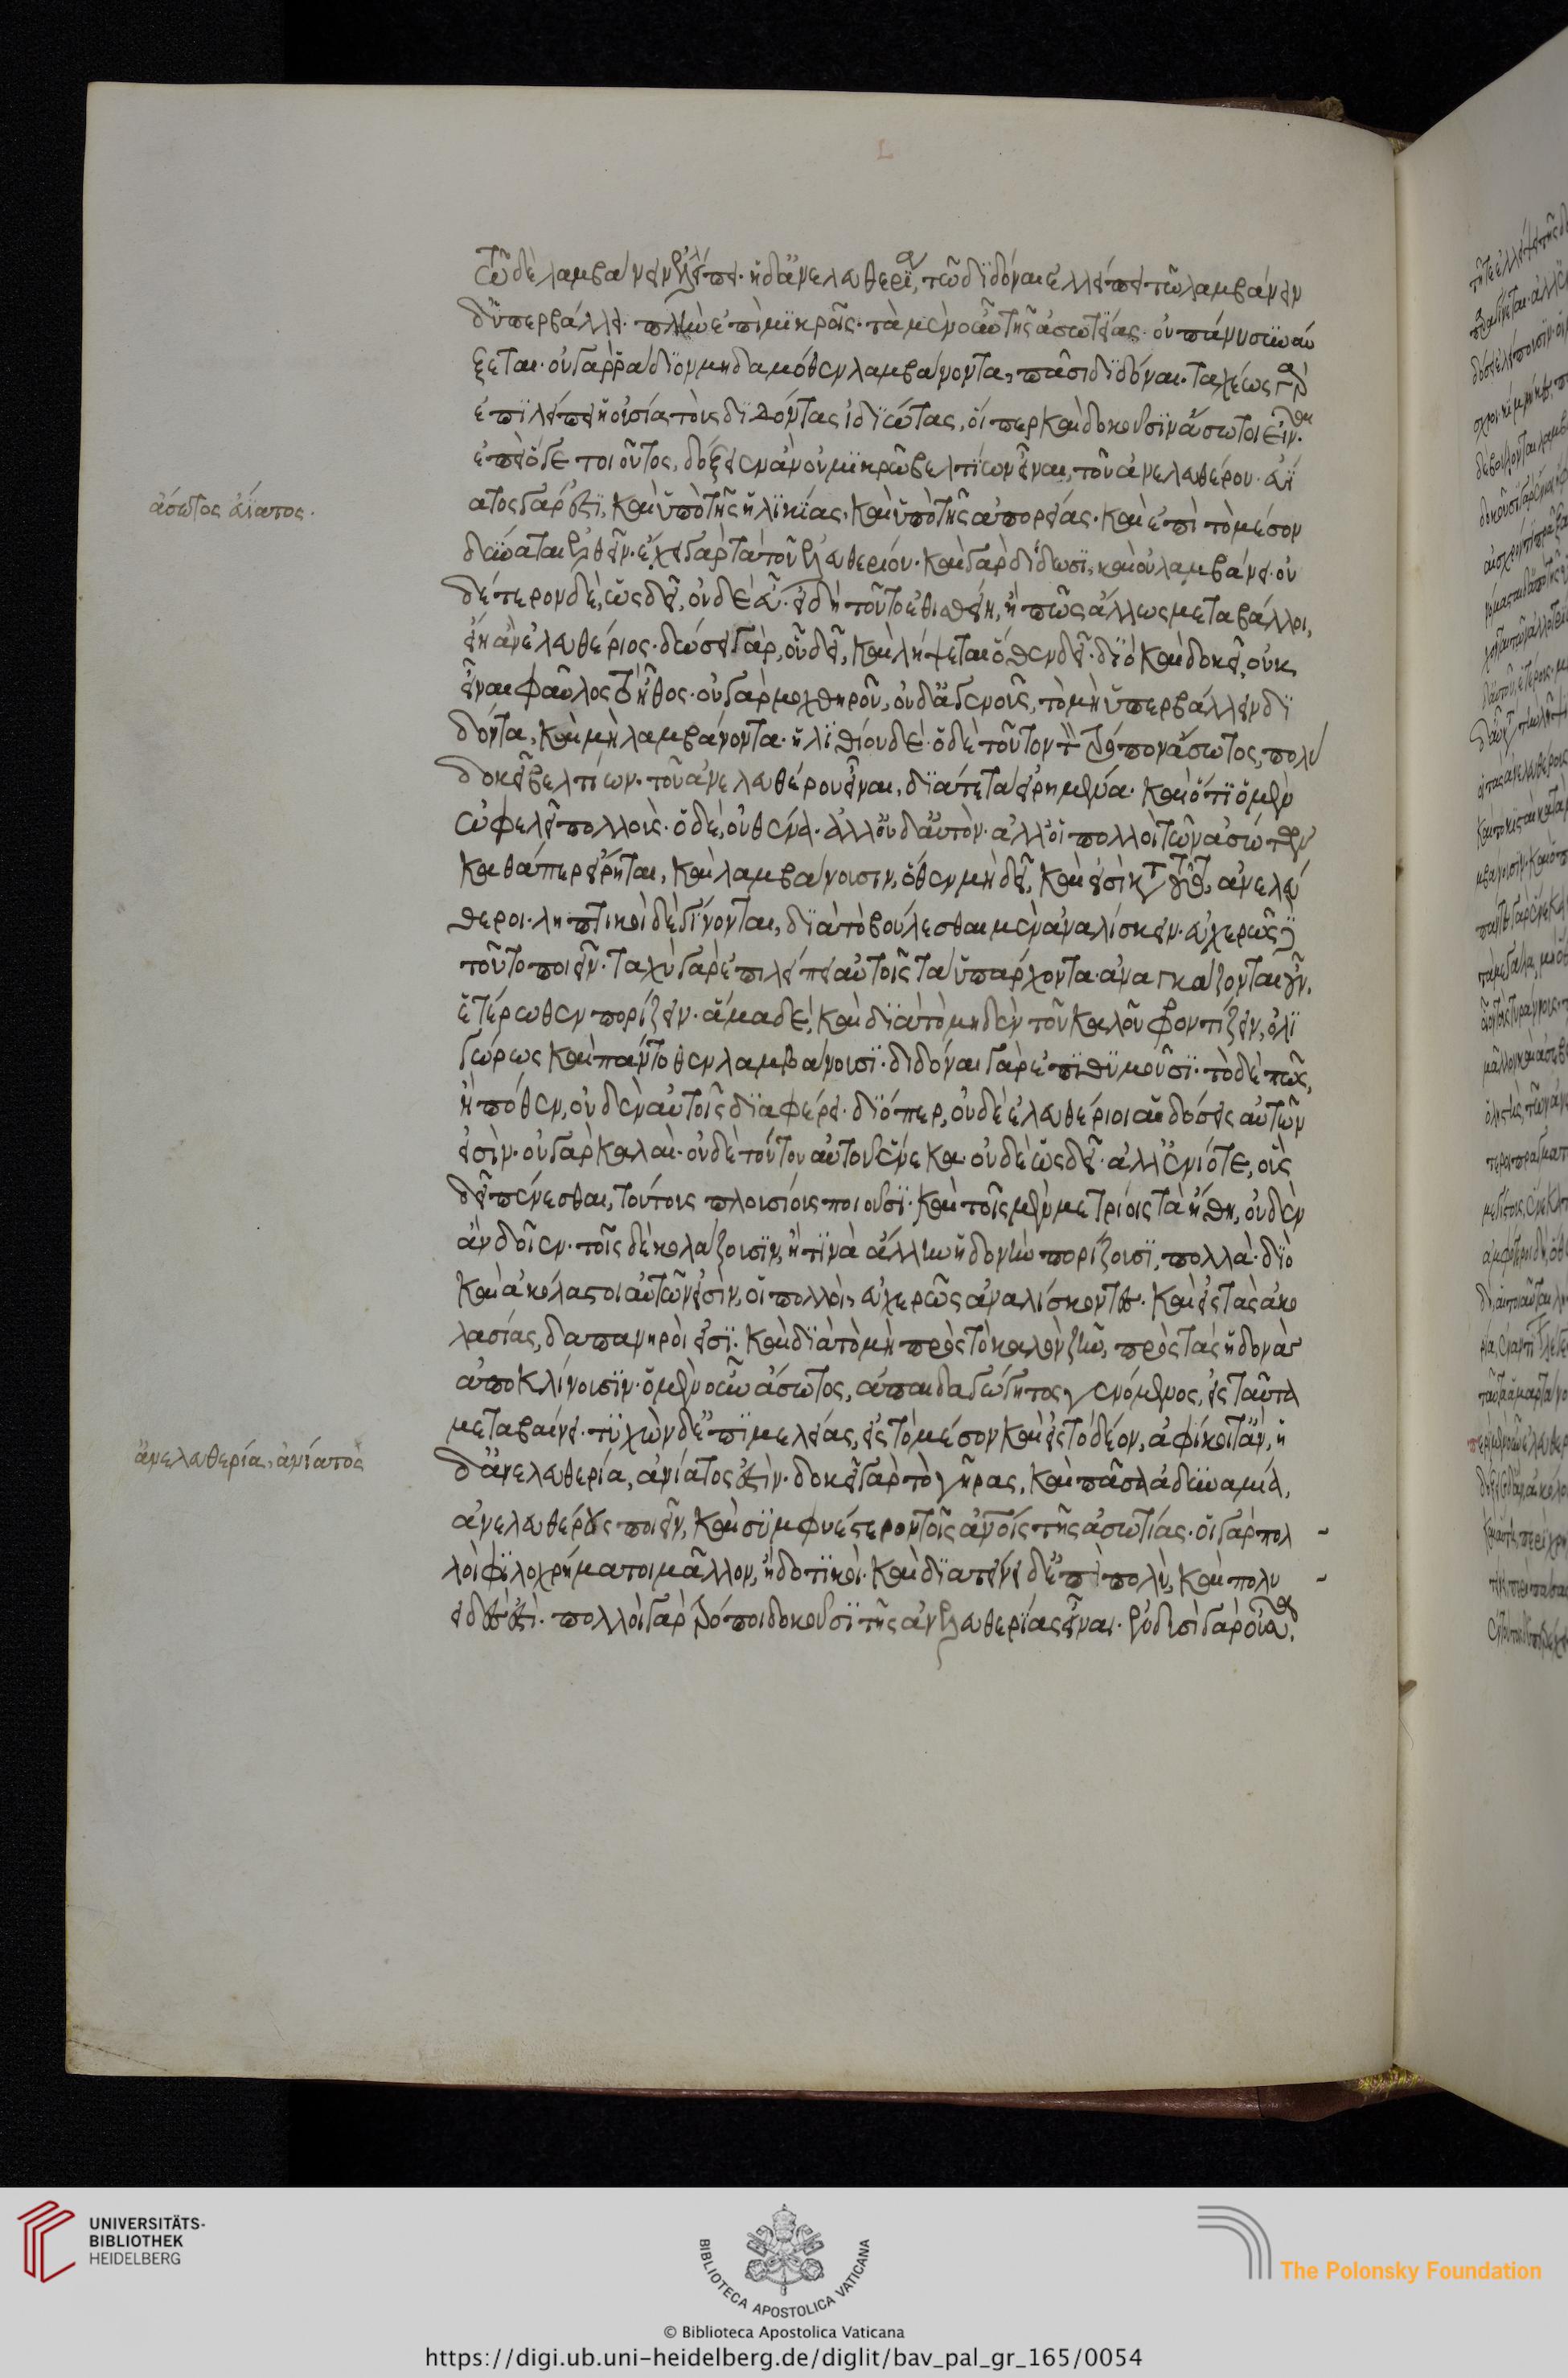 τῶ δὲ λαμβάνειν ἐλλείπει· ἡ δ' ἀνελευθερία, τῶ διδόναι ἐλλείπει τῶ λαμβάνειν
δ' ὑπερβάλλει· πλὴν ἐπὶ μικροῖς· τὰ μὲν οὖν τῆς ἀσωτείας οὐ πάνυ συναύ
ξεται· οὐ γὰρ ῥάδιον μηδαμόθεν λαμβάνοντα, πᾶσι διδόναι· ταχέως γὰρ
ἐπιλείπει ἡ οὐσία τοὺς διδόντας ἰδιώτας, οἵπερ καὶ δοκοῦσιν ἄσωτοι εἶναι·
ἐπεὶ ὅδε τοιοῦτος, δόξειεν ἂν οὐ μικρῶ βελτίων εἶναι, τοῦ ἀνελευθέρου· ἀΐ
ατος γάρ ἐστι, καὶ ὑπὸ τῆς ἡλικίας, καὶ ὑπὸ τῆς ἀπορείας· καὶ ἐπὶ τὸ μέσον
δύναται ἐλθεῖν· ἔχει γὰρ τὰ τοῦ ἐλευθερίου· καὶ γὰρ δίδωσι, καὶ οὐ λαμβάνει· οὐ
δέτερον δὲ, ὡς δεῖ, οὐδὲ εὖ· εἰ δὴ τοῦτο ἐθισθείη, ἤ πως ἄλλως μεταβάλλοι,
εἴη ἂν ἐλευθέριος· δώσει γὰρ, οὗ δεῖ, καὶ λήψεται ὅθεν δεῖ· διὸ καὶ δοκεῖ, οὐκ
εἶναι φαῦλος τὸ ἦθος· οὐ γὰρ μοχθηροῦ, οὐδ' ἀγενοῦς, τὸ μὴ ὑπερβάλλειν δι
δόντα, καὶ μὴ λαμβάνοντα· ἠλιθίου δέ· ὁ δὲ τοῦτον τὸν τρόπον ἄσωτος, πολὺ
δοκεῖ βελτίων τοῦ ἀνελευθέρου εἶναι, διά τε τὰ εἰρημένα· καὶ ὅτι ὁ μὲν
ὠφελεῖ πολλοὺς· ὁ δὲ, οὐθένα· ἀλλ' οὐδ' αὑτὸν· ἀλλ' οἱ πολλοὶ τῶν ἀσώτων
καθάπερ εἴρηται, καὶ λαμβάνουσιν, ὅθεν μὴ δεῖ, καὶ εἰσὶ κατὰ τοῦτο, ἀνελεύ
θεροι· ληπτικοὶ δὲ γίνονται, διὰ τὸ βούλεσθαι μὲν ἀναλίσκειν· εὐχερῶς δὲ
τοῦτο ποιεῖν· ταχὺ γὰρ ἐπιλείπει αὐτοῖς τὰ ὑπάρχοντα· ἀναγκάζονται οὖν,
ἑτέρωθεν πορίζειν· ἅμα δέ, καὶ διὰ τὸ μηδὲν τοῦ καλοῦ φροντίζειν, ὀλι
γώρως καὶ πάντοθεν λαμβάνουσι· διδόναι γὰρ ἐπιθυμοῦσι· τὸ δὲ πῶς,
ἢ πόθεν, οὐδὲν αὐτοῖς διαφέρει· διόπερ, οὐδὲ ἐλευθέριοι αἱ δόσεις αὐτῶν
εἰσίν· οὐ γὰρ καλαὶ· οὐδὲ τούτου αὐτοῦ ἕνεκα· οὐδὲ ὡς δεῖ· ἀλλ' ἐνίοτε, οὓς
δεῖ πένεσθαι, τούτους πλουσίους ποιοῦσι· καὶ τοῖς μὲν μετρίοις τὰ ἤθη, οὐδὲν
ἂν δοῖεν· τοῖς δὲ κολάζουσιν, ἤ τινα ἄλλην ἡδονὴν πορίζουσι, πολλά· διὸ
καὶ ἀκόλαστοι αὐτῶν εἰσὶν, οἱ πολλοὶ, εὐχερῶς ἀναλίσκοντες· καὶ εἰς τὰς ἀκο
λασίας, δαπανηροὶ εἰσι· καὶ διὰ τὸ μὴ πρὸς τὸ καλὸν ζῆν, πρὸς τὰς ἡδονὰς
ἀποκλίνουσιν· ὁ μὲν οὖν ἄσωτος, ἀπαιδαγώγητος γενόμενος, εἰς ταῦτα
μεταβαίνει· τυχὼν δ' ἐπιμελείας, εἰς τὸ μέσον καὶ εἰς τὸ δέον, ἀφίκοιτ' ἄν, ἡ
δ' ἀνελευθερία, ἀνίατός ἐστιν· δοκεῖ γὰρ τὸ γῆρας, καὶ πᾶσα ἀδυναμία,
ἀνελευθέρους ποιεῖν, καὶ συμφυέστερον τοῖς ἀνοις τῆς ἀσωτίας· οἱ γὰρ πολ
λοὶ φιλοχρήματοι μᾶλλον, ἢ δοτικοί· καὶ διατείνει δ' ἐπὶ πολὺ, καὶ πολυ
ειδές ἐστι· πολλοὶ γὰρ τρόποι δοκοῦσι τῆς ἀνελευθερίας εἶναι· ἐν δυσὶ γὰρ οὖσα
ἄσωτος ἀΐατος·
ἀνελευθερία, ἀνίατος
UNIVERSITÄTS-
BIBLIOTHEK
HEIDELBERG
BIBLIOTECA APOSTOLICA VATICANA
The Polonsky Foundation
© Biblioteca Apostolica Vaticana
https://digi.ub.uni-heidelberg.de/diglit/bav_pal_gr_165/0054